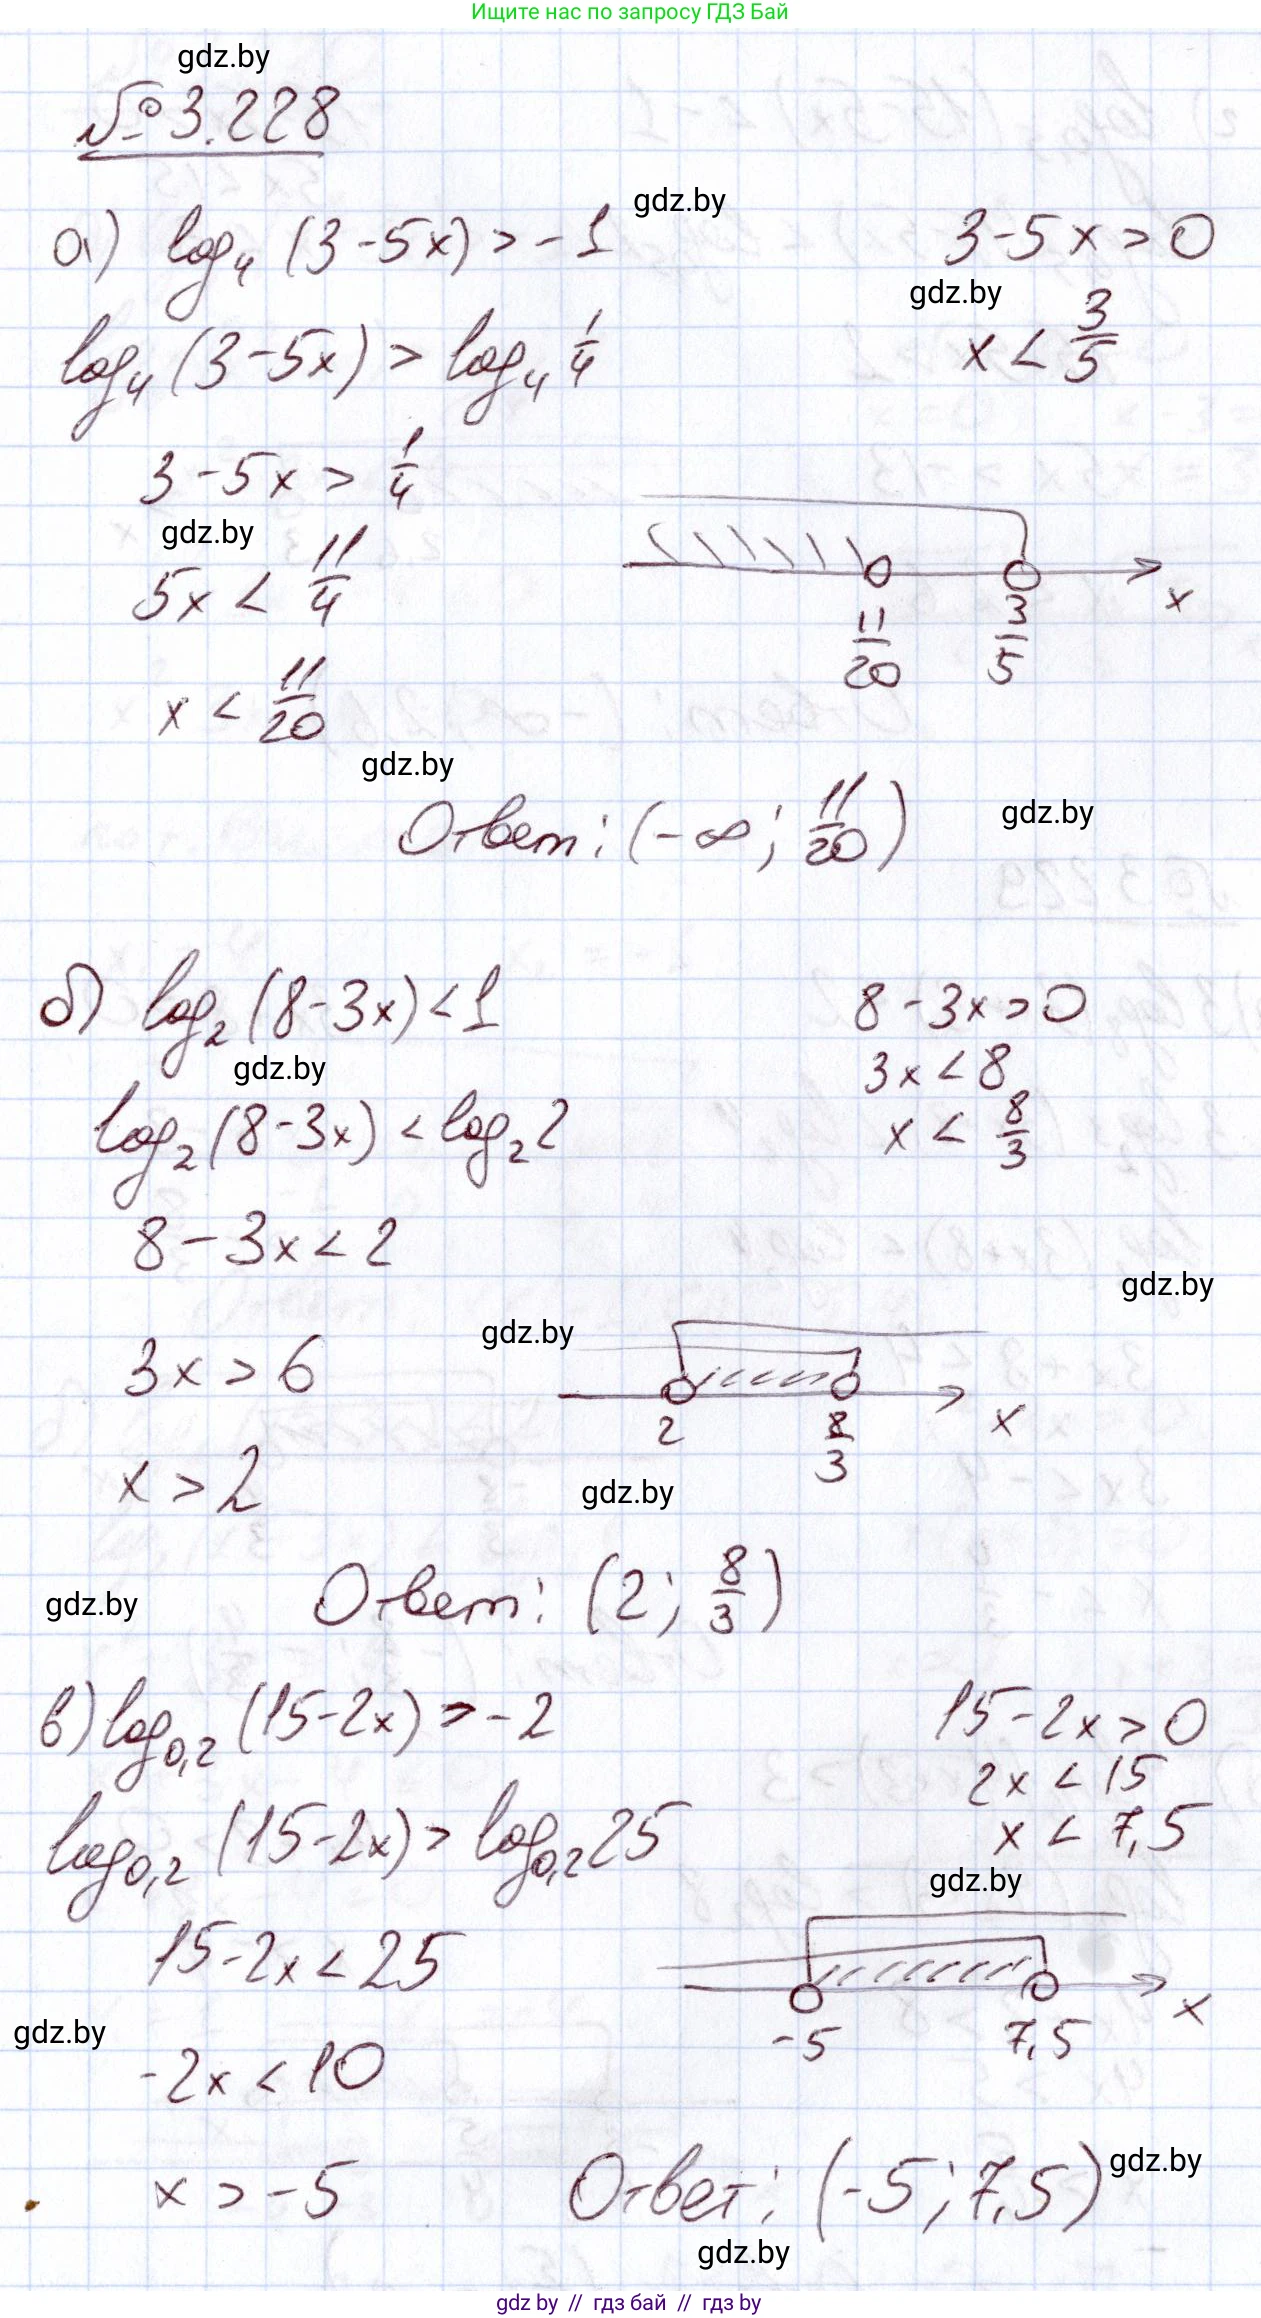 Ищите нас по запросу ГДЗ Бай
gdz.by
№ 3.228
а) log₄ (3-5x) > -1
gdz.by
3-5x > 0
gdz.by
log₄ (3-5x) > log₄ 1/4
x < 3/5
3-5x > 1/4
gdz.by
5x < 11/4
x
11/20 3/5
x < 11/20
gdz.by
Ответ: (-∞; 11/20)
gdz.by
б) log₂ (8-3x) < 1
8-3x > 0
gdz.by
3x < 8
log₂ (8-3x) < log₂ 2
x < 8/3
8-3x < 2
gdz.by
gdz.by
3x > 6
2 8/3 x
x > 2
gdz.by
Ответ: (2; 8/3)
gdz.by
в) log₀,₂ (15-2x) > -2
15-2x > 0
2x < 15
log₀,₂ (15-2x) > log₀,₂ 25
x < 7,5
gdz.by
15-2x < 25
-5 7,5 x
gdz.by
-2x < 10
x > -5
Ответ: (-5; 7,5)
gdz.by
gdz.by
gdz by // гдз бай // гдз by